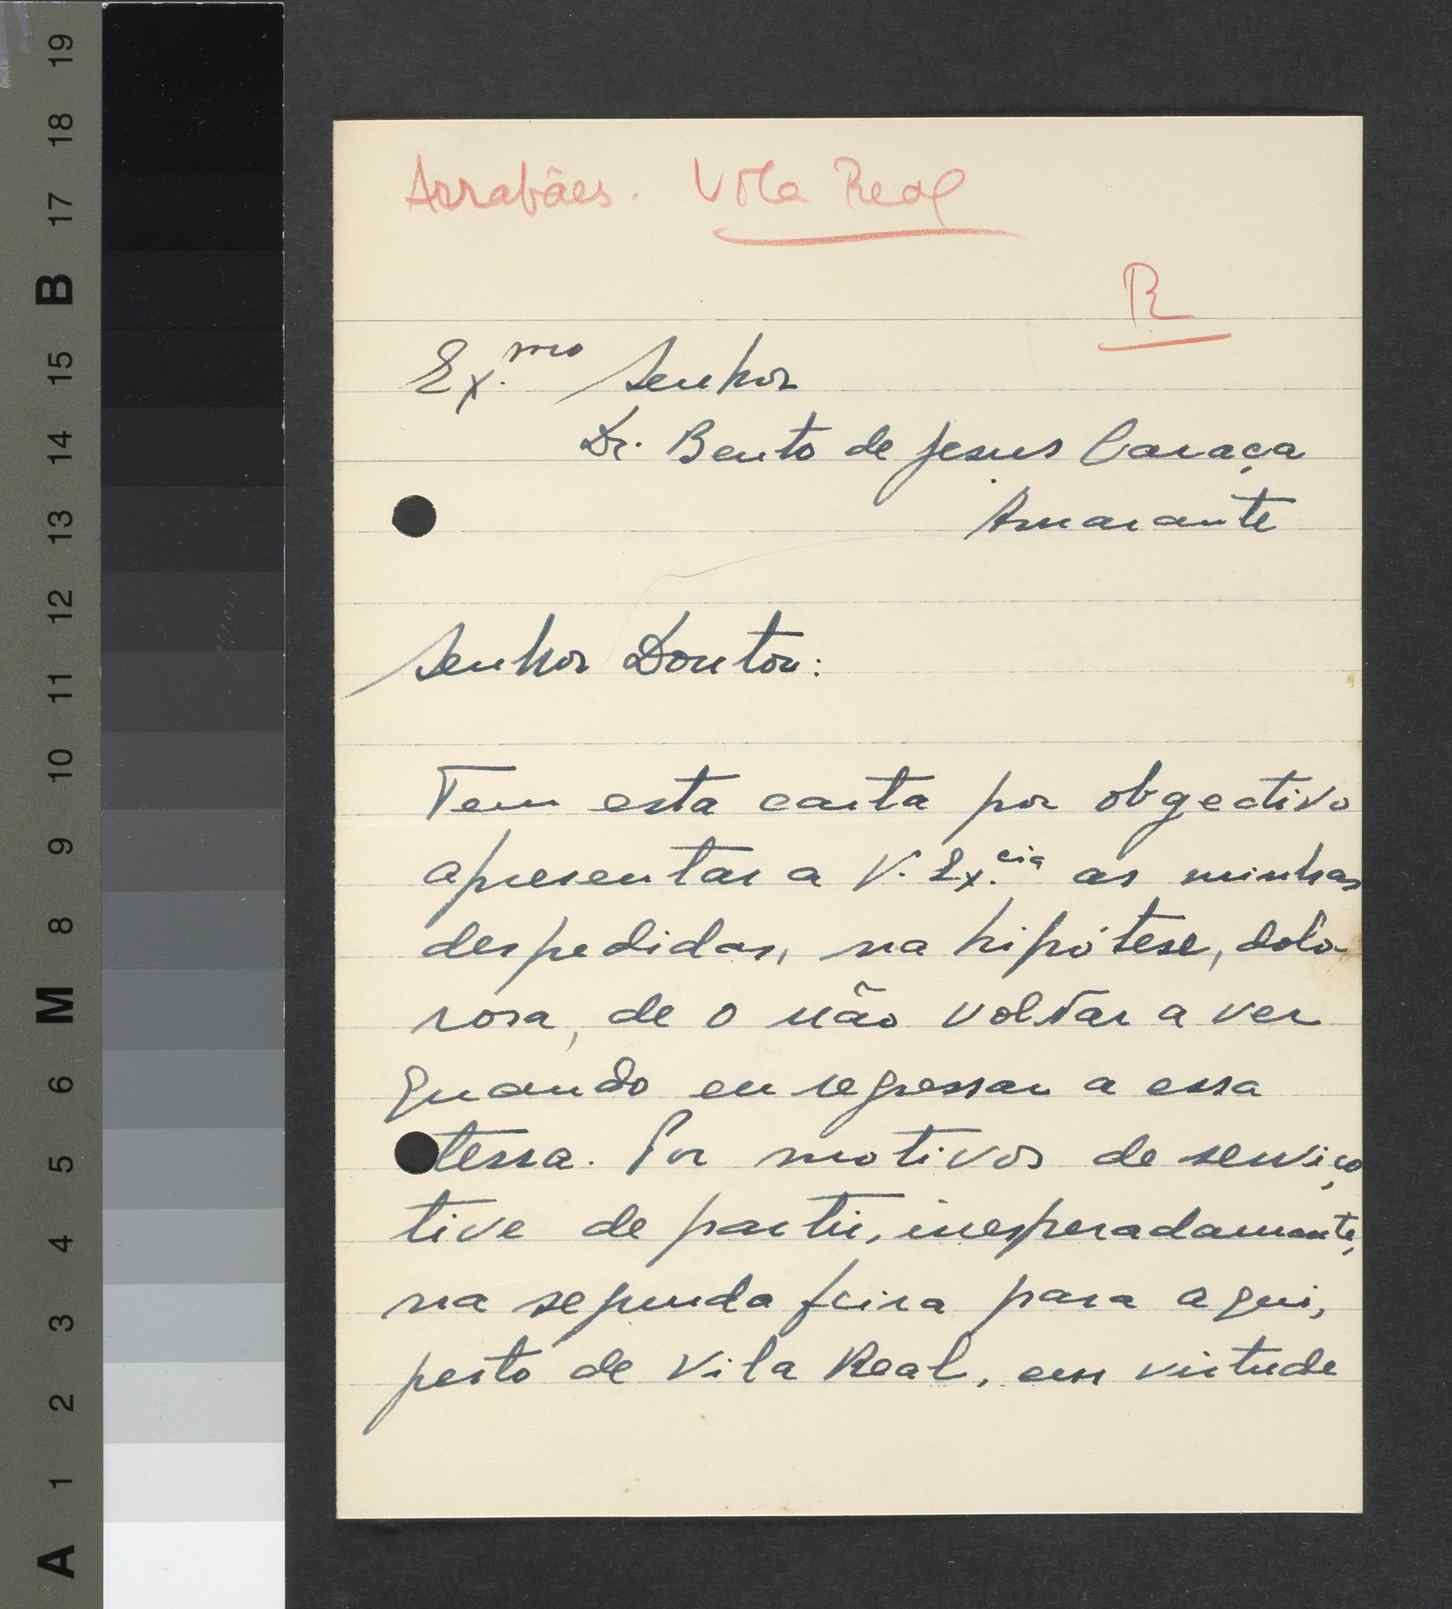 Arrabães. Vila Real
R
Ex.mo Senhor
Dr. Bento de Jesus Caraça
Amarante
Senhor Doutor:
Tem esta carta por obgectivo
apresentar a V. Ex.cia as minhas
despedidas, na hipótese, dolo-
rosa, de o não voltar a ver
quando eu regressar a essa
terra. Por motivos de serviço
tive de partir, inesperadamente,
na segunda feira para aqui,
perto de Vila Real, em virtude
19
18
17
B
15
14
13
12
11
10
9
8
M
6
5
4
3
2
1
A